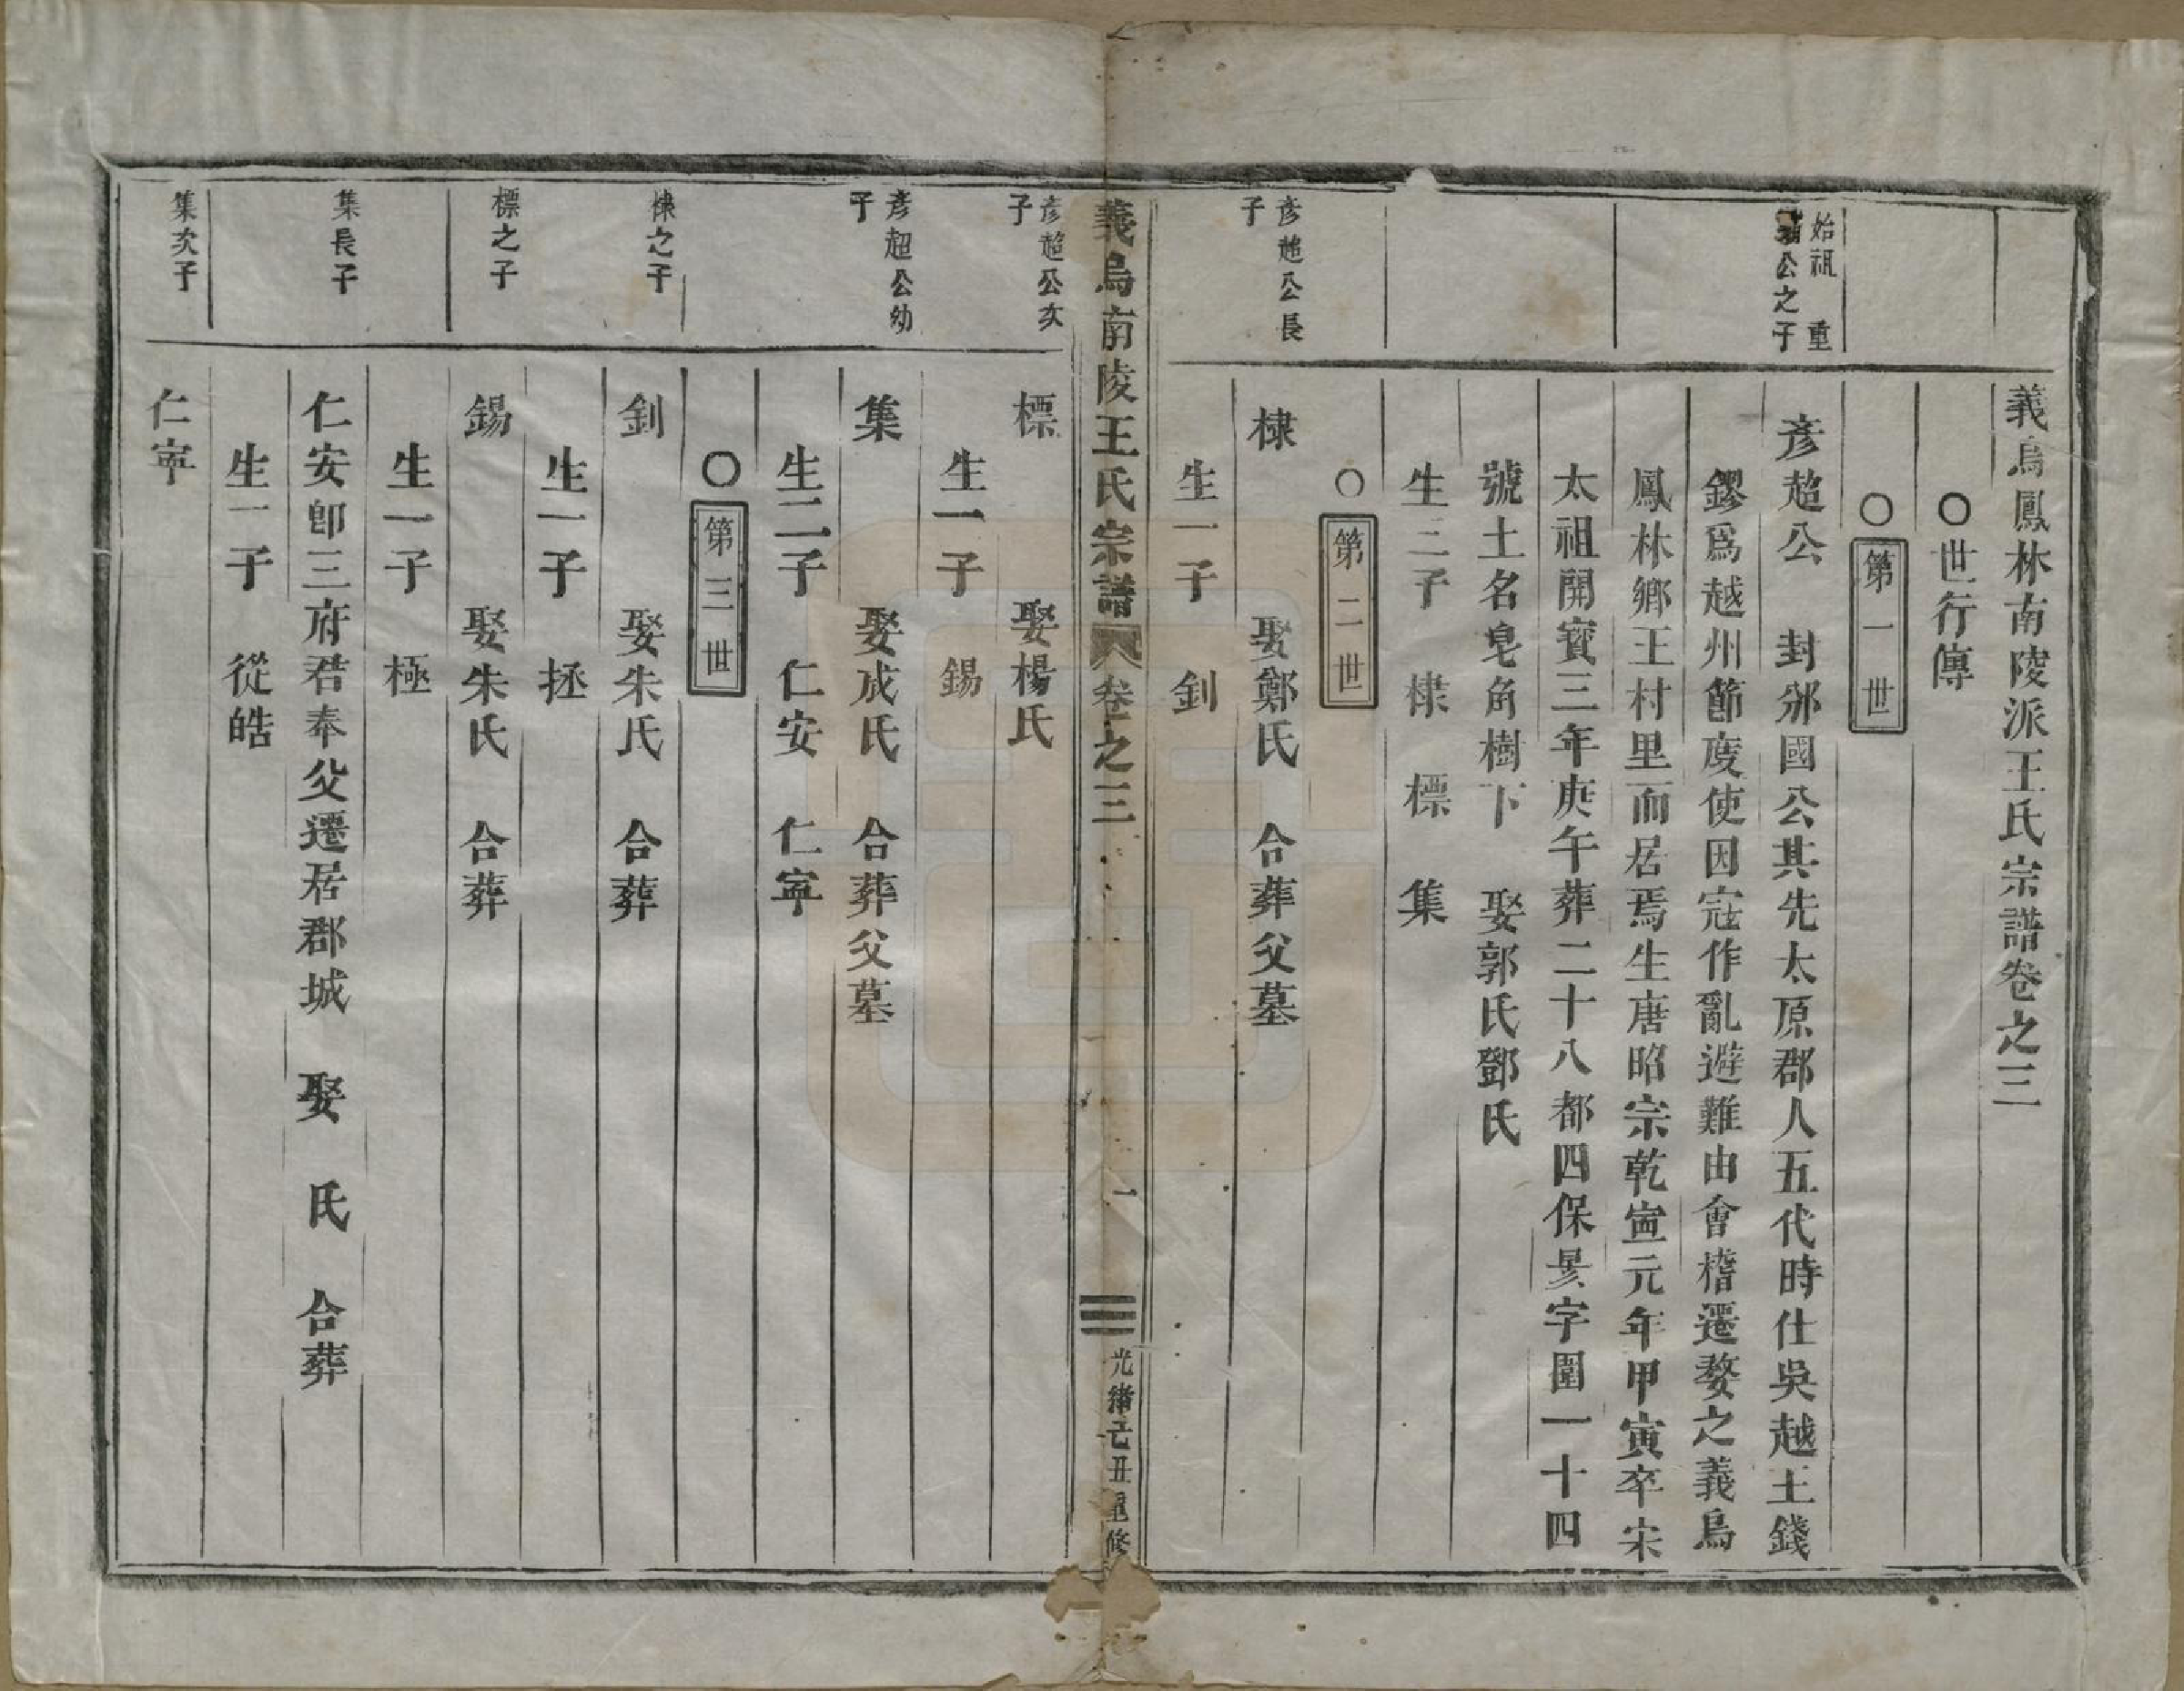 義烏鳳林南陵派王氏宗譜卷之三
〇世行傳
〇第一世
始祖 重
公之子
彥超公 封邠國公其先太原郡人五代時仕吳越王錢
鏐爲越州節度使因寇作亂避難由會稽遷婺之義烏
鳳林鄉王村里而居焉生唐昭宗乾寧元年甲寅卒宋
太祖開寶三年庚午葬二十八都四保景字圍一十四
號土名皂角樹下 娶郭氏鄧氏
生三子 棣 標 集
〇第二世
彥超公長
子
棣 娶鄭氏 合葬父墓
生一子 釗
義烏南陵王氏宗譜 卷之三 一 光緒己丑重修
彥超公次
子
標 娶楊氏
生一子 錫
彥超公幼
子
集 娶成氏 合葬父墓
生二子 仁安 仁寧
〇第三世
棣之子
釗 娶朱氏 合葬
生一子 拯
標之子
錫 娶朱氏 合葬
生一子 極
集長子
仁安卽三府君奉父遷居郡城 娶 氏 合葬
生一子 從皓
集次子
仁寧